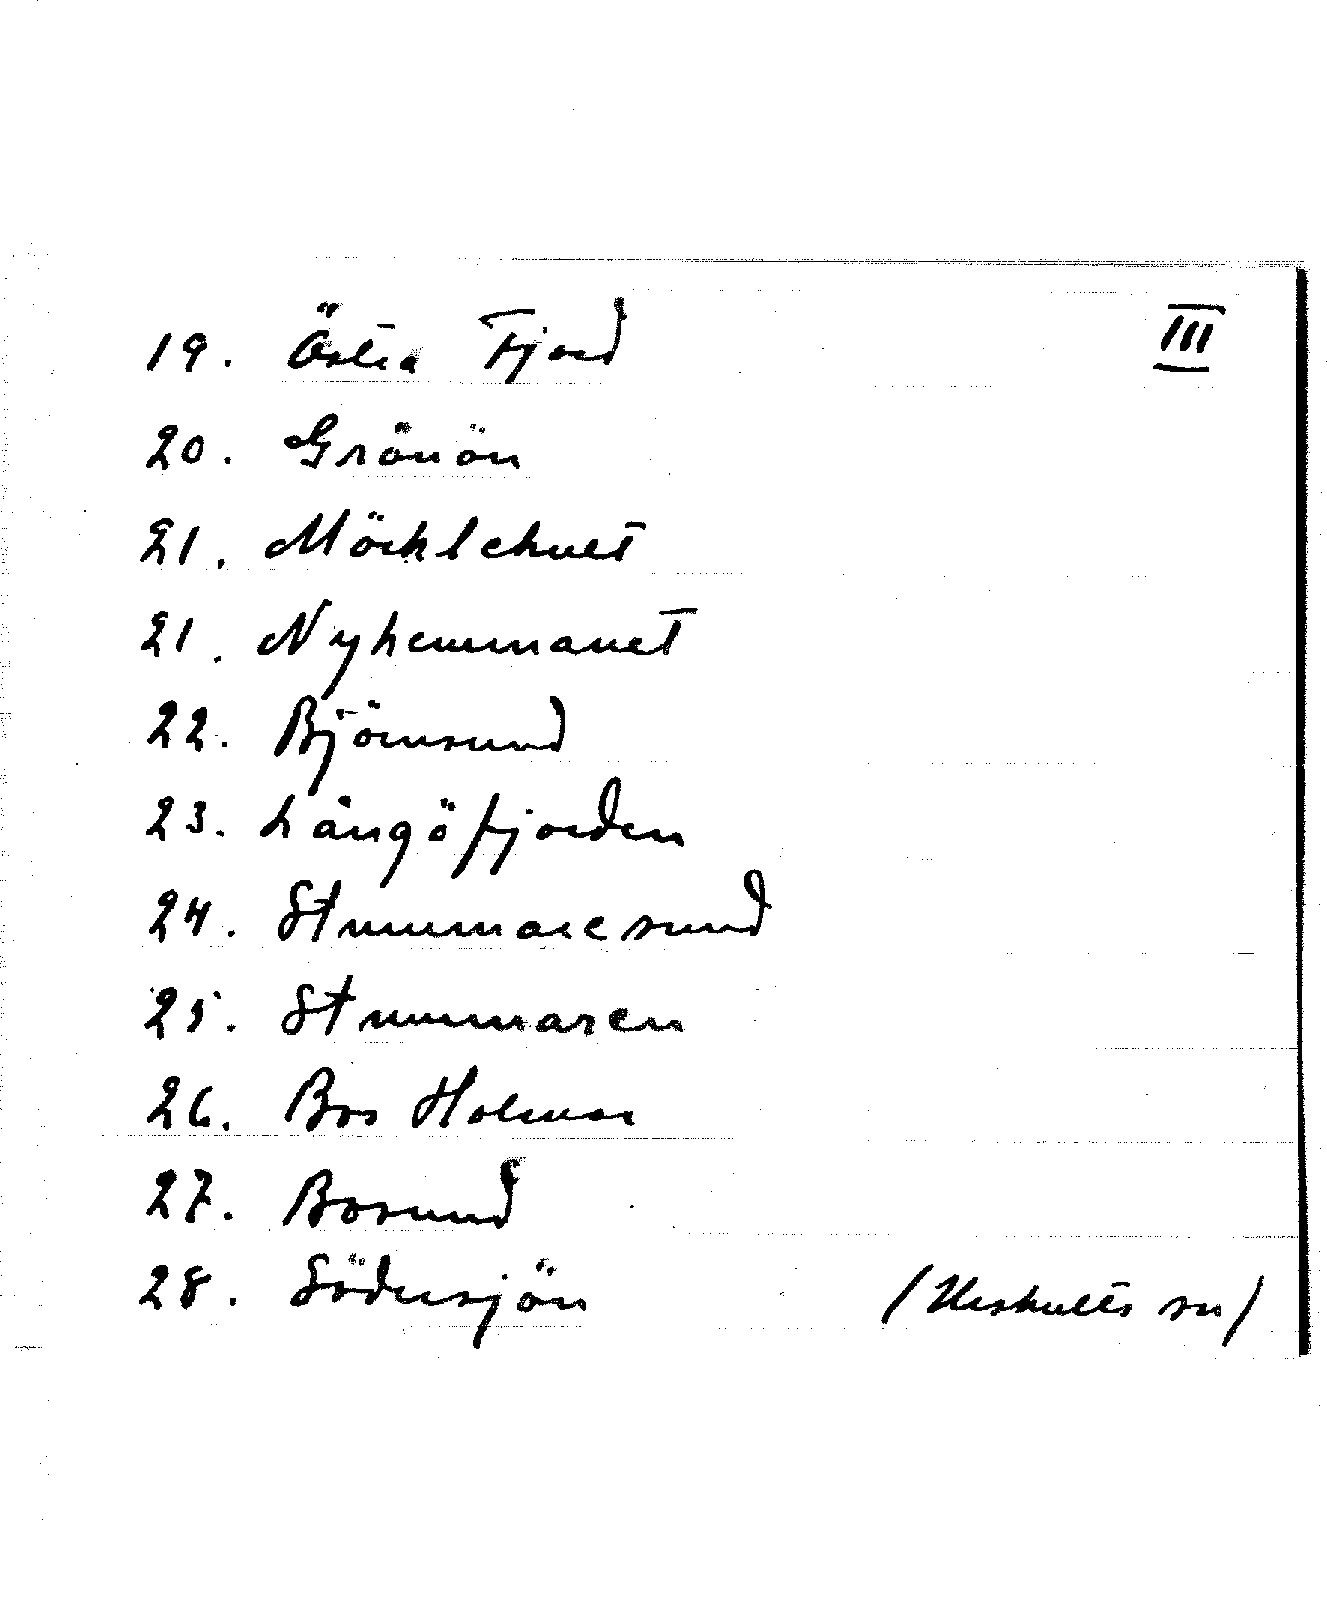 19. Östra Fjord III
20. Grönön
21. Möcklehult
21. Nyhemmanet
22. Björnsund
23. Långöfjorden
24. Stmmmaresund
25. Stmmmaren
26. Bos Holmar
27. Bosund
28. Södersjön (Urshults sn)